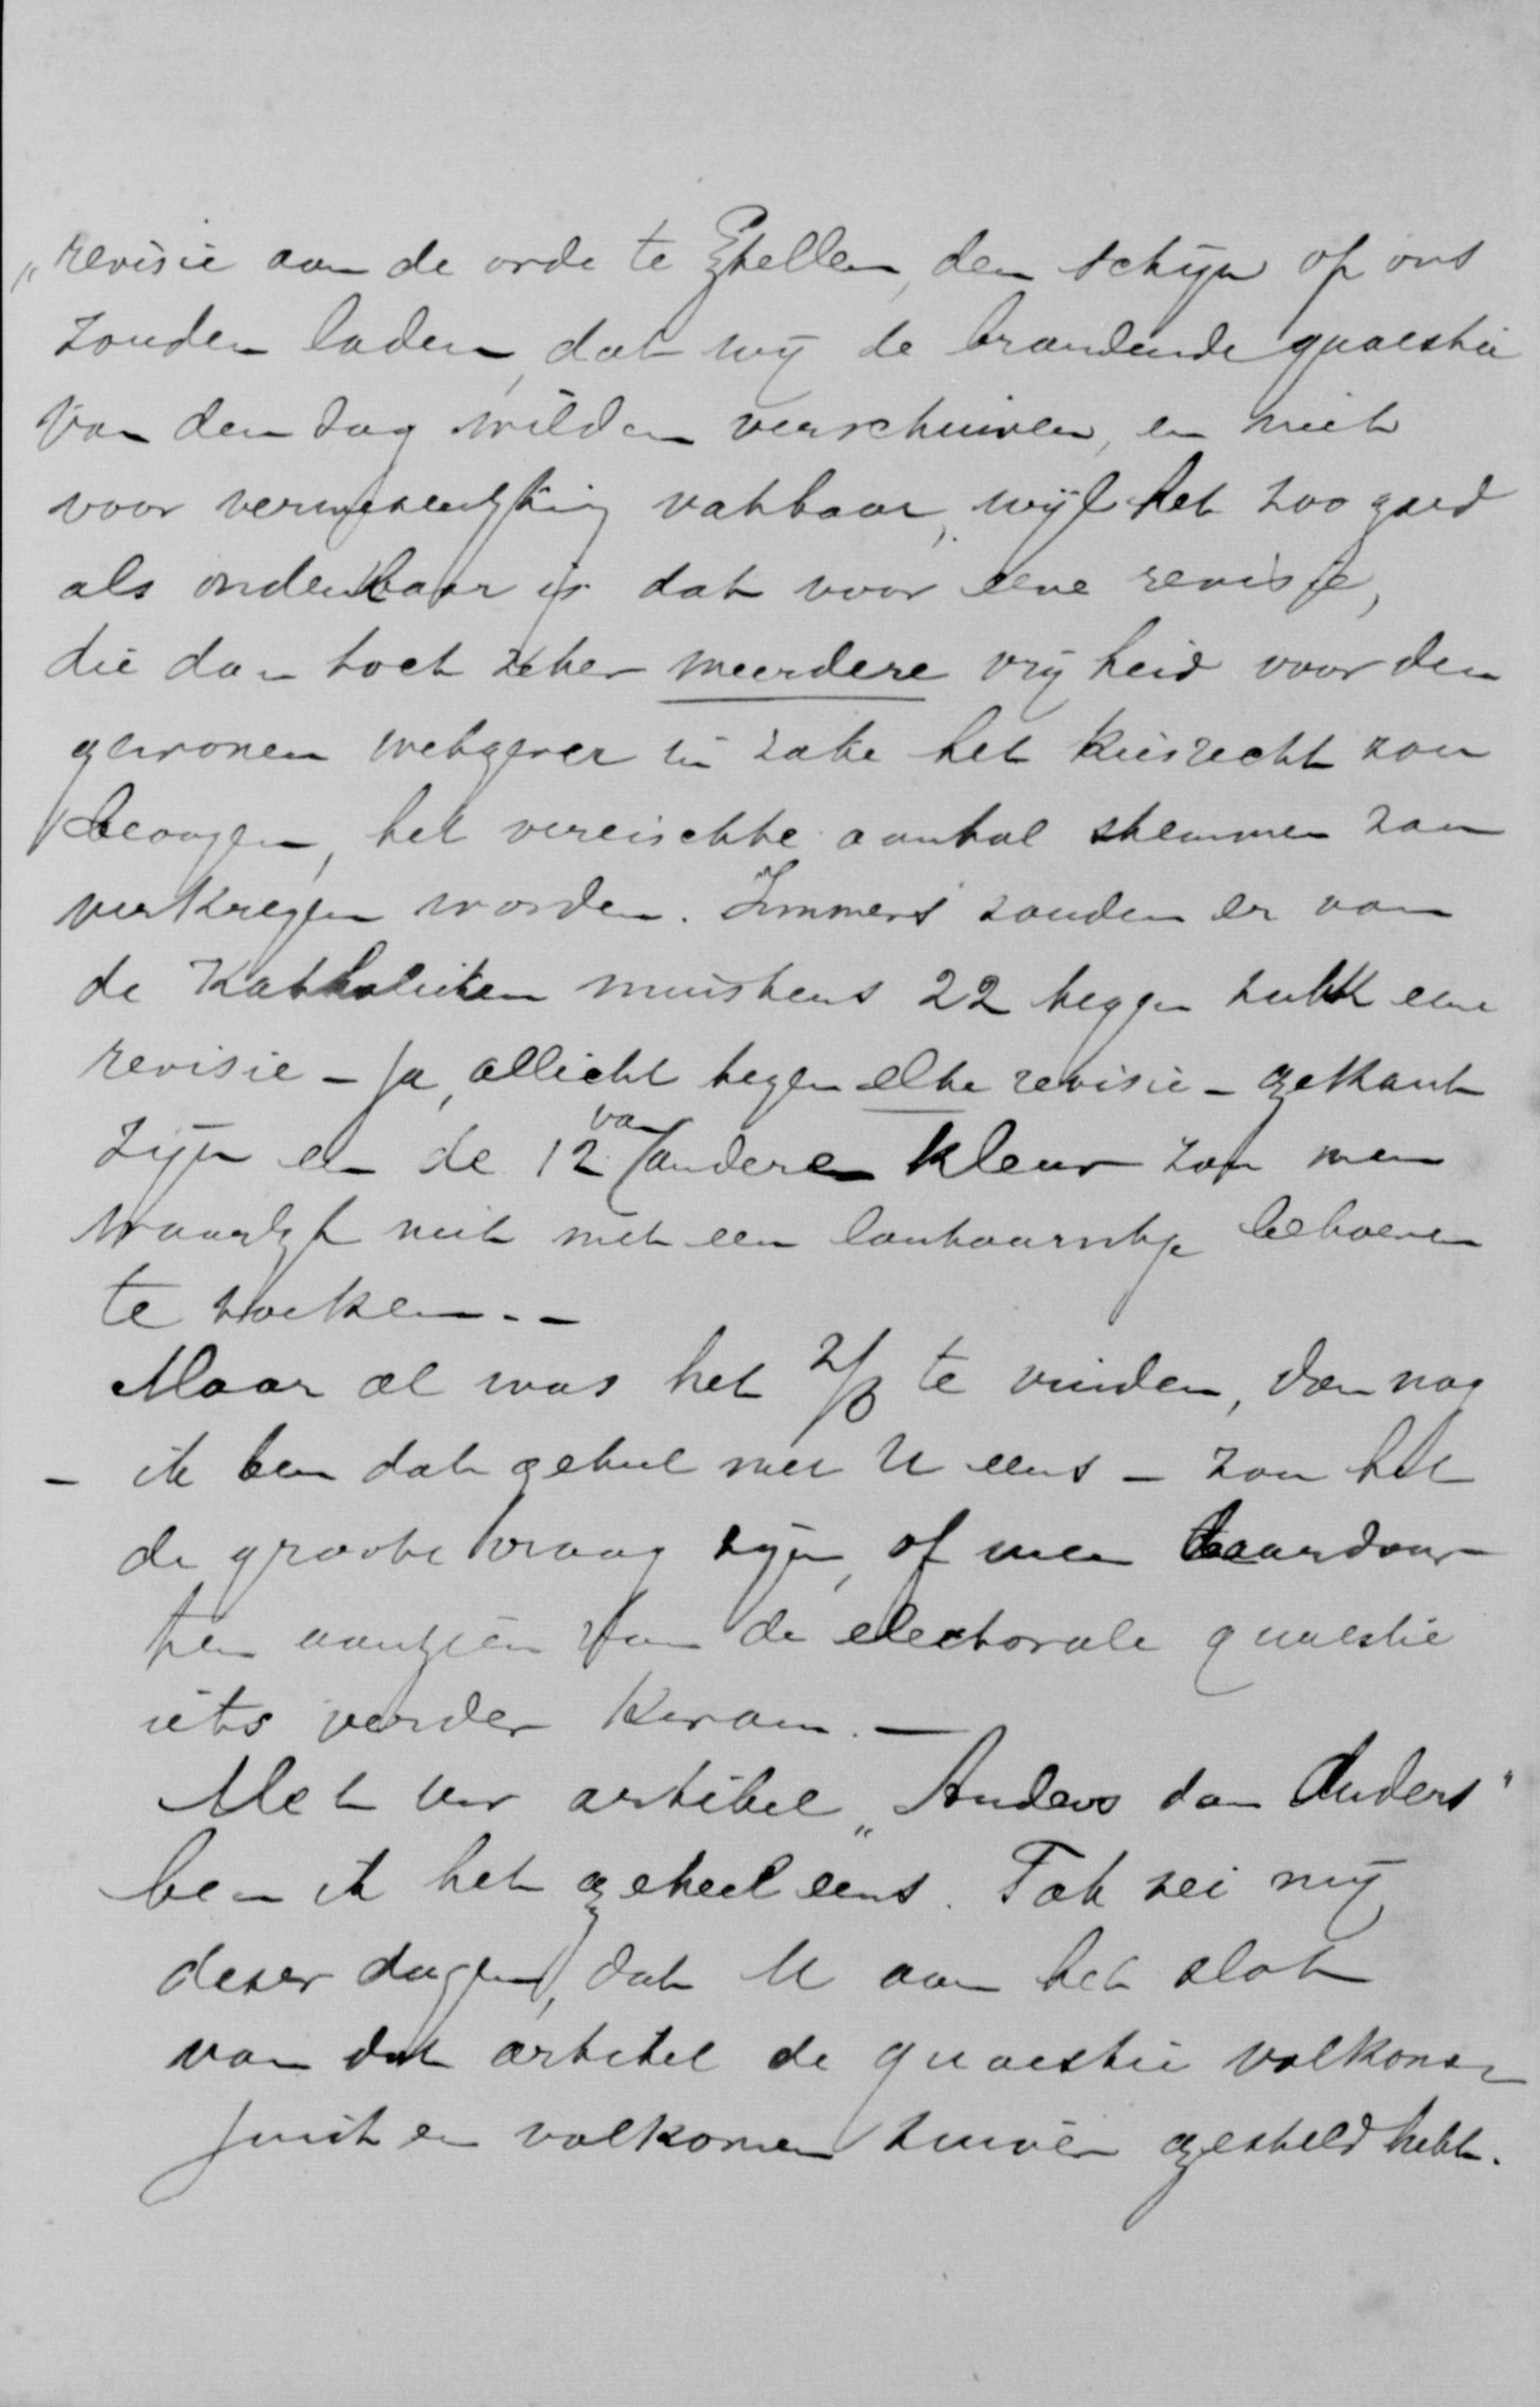 „revisie aan de orde te stellen, den schijn op ons
zouden laden, dat wij de brandende quaestie
van den dag wilden verschuiven, en niet
voor verwezenlijking vatbaar, wijl het zoo goed
als ondenkbaar is dat voor eene revisie,
die dan toch zeker meerdere vrijheid voor den
gewonen wetgever in zake het kiesrecht zou
beoogen, het vereischte aantal stemmen zou
verkregen worden. Immers zouden er van
de Katholieken minstens 22 tegen zulk eene
revisie – ja, allicht tegen elke revisie – gekant
zijn en de 12 van andere kleur zou men
waarlijk niet met een lantaarntje behoeven
te zoeken. –
Maar al was het 2/3 te vinden, dan nog
– ik ben dat geheel met U eens – zou het
de groote vraag zijn, of men daardoor
ten aanzien van de electorale quaestie
iets verder kwam. –
Met uw artikel „Anders dan Anders"
ben ik het geheel eens. Tak zei mij
dezer dagen, dat U aan het slot
van dat artikel de quaestie volkomen
juist en volkomen zuiver gesteld hebt.